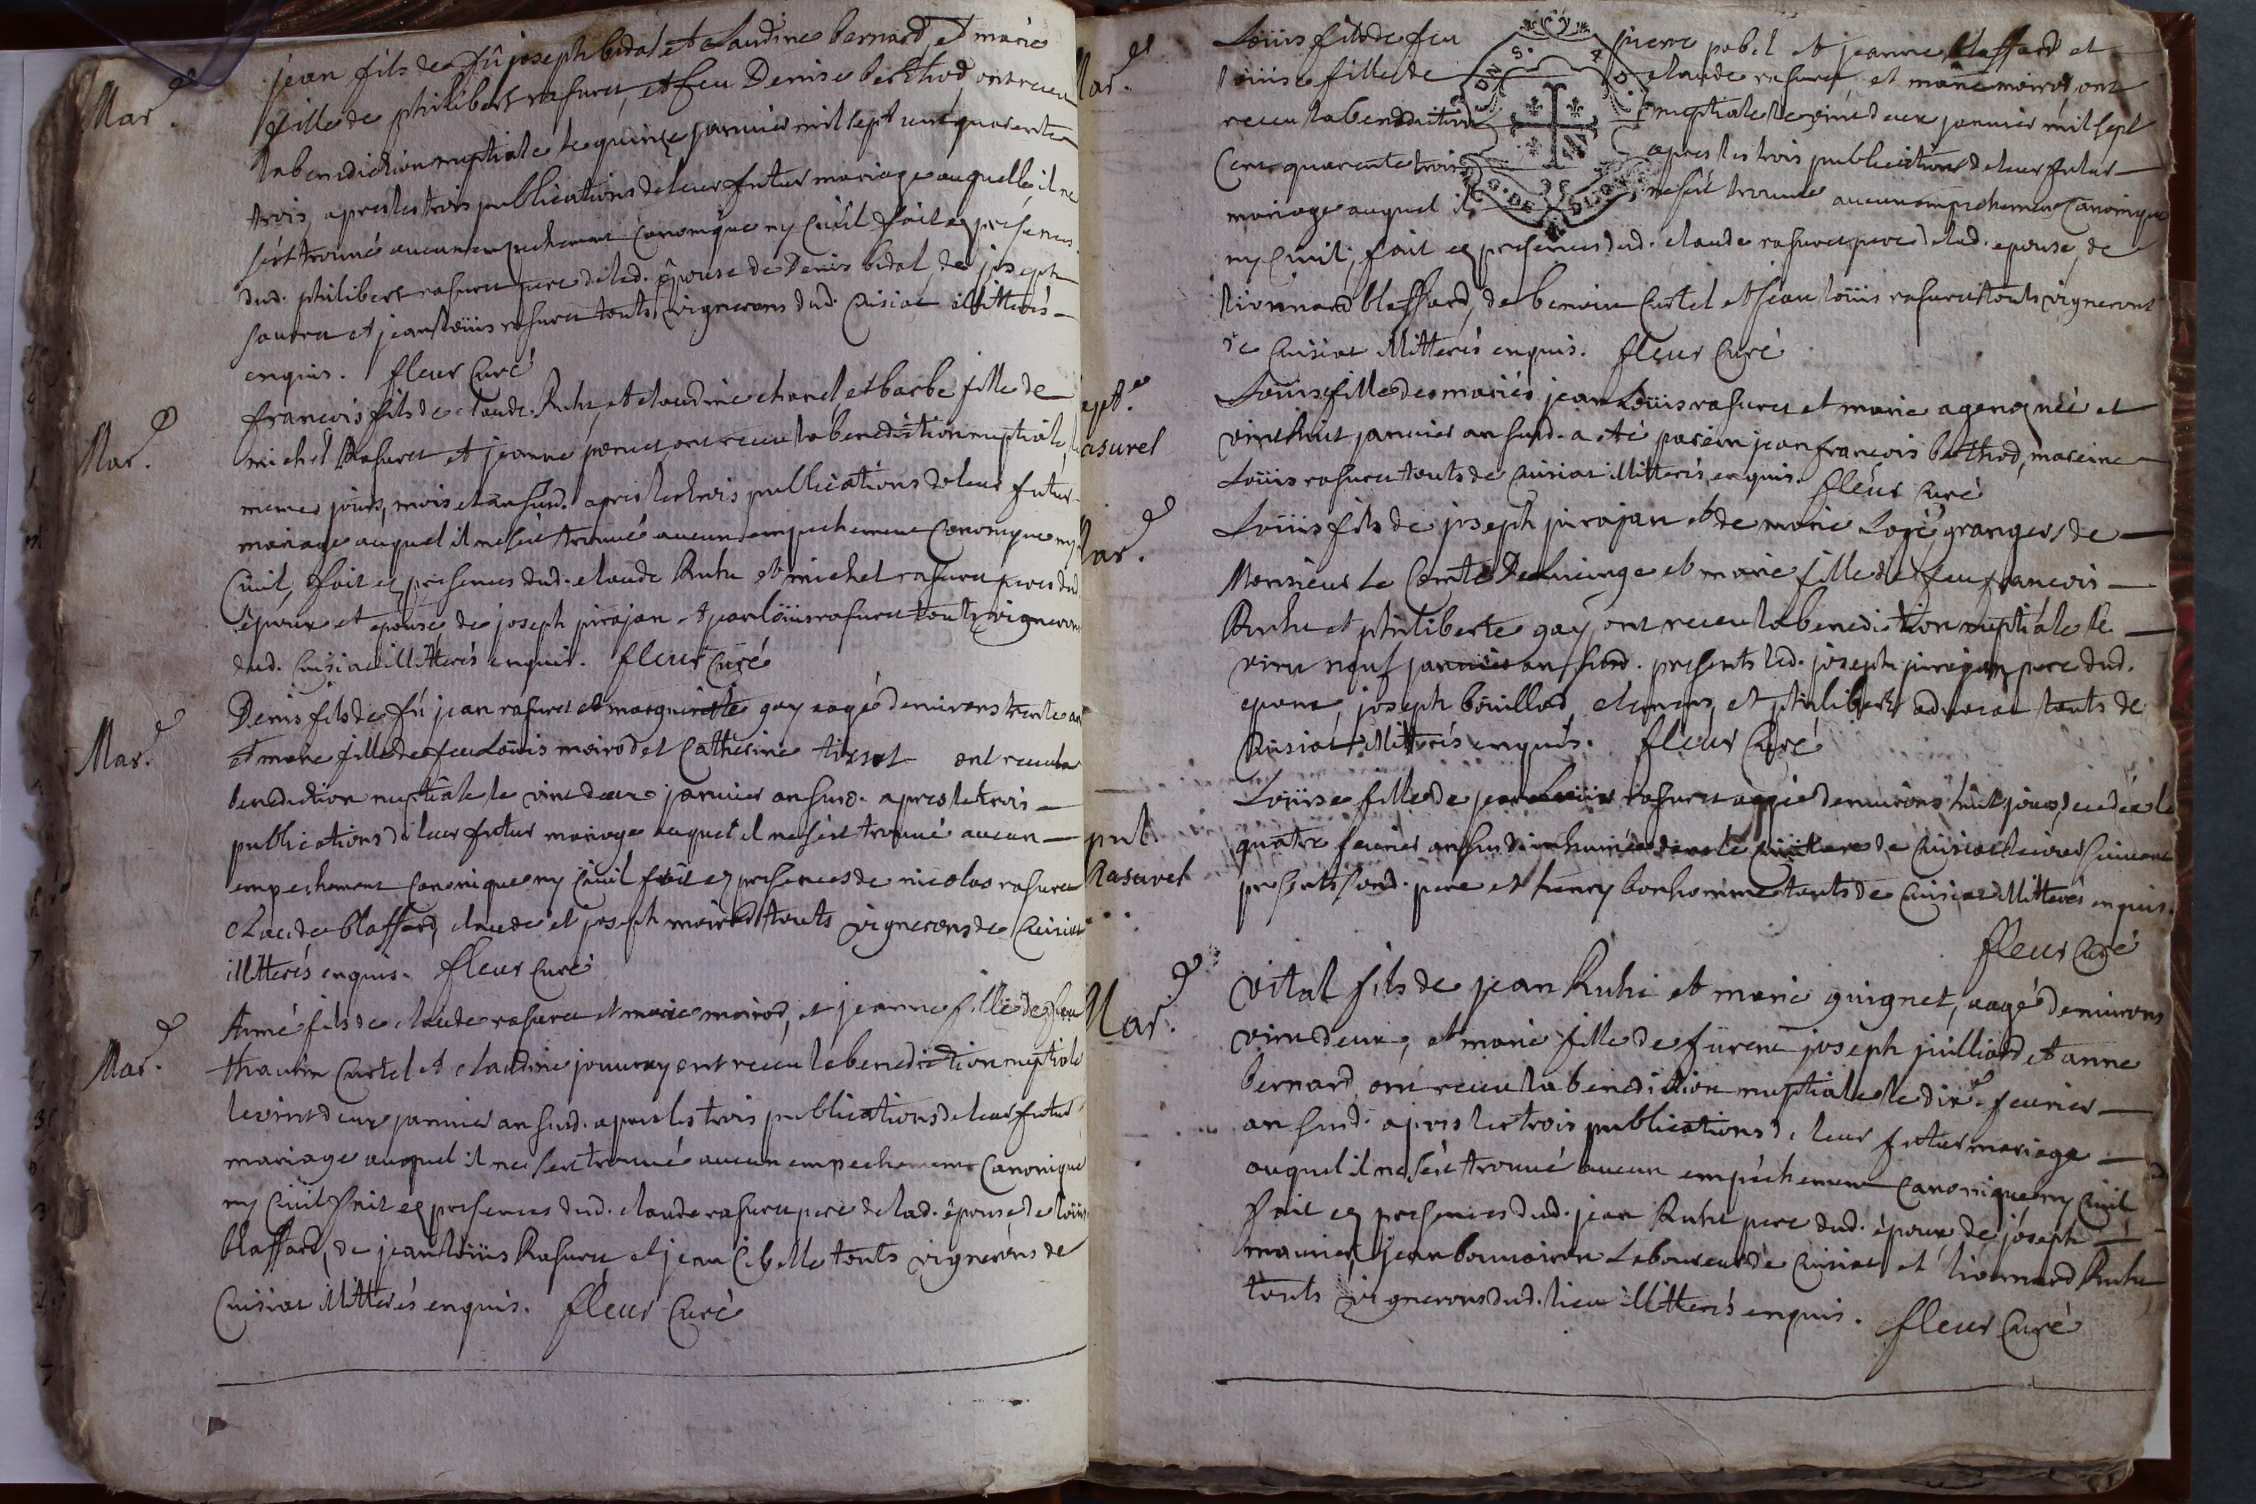 Mar.e
jean fils de fû joseph bidal et claudine bernard, et marie
fille de philibert rasurel, et feu Denise berthod, ont receu
la benediction nuptiale le quinze janvier mil sept cent quarente
trois, apres les trois publications de leur futur mariage auquelle il ne
s'est trouvé aucun empechement canonique ny civil fait es presences
dud. philibert rasurel pere de lad. épouse de Denis bidal, de joseph
et jean loüis rasurel touts vignerons dud. Cuisiat illitterés
enquis. fleur Curé
Mar.e
francois fils de claude Ruhe, et claudine chanel et barbe fille de
michel Rasurel et jeanne ont receu la benediction nuptiale,
memes jours, mois et an susd. apres les trois publications de leur futur
mariage auquel il ne s'est trouvé aucun empechement canonique ny
Civil, fait es presences dud. claude Ruhe et michel rasurel peres dud.
époux et epouse, de joseph pirajan et jean loüis rasurel touts vignerons
dud. Cuisiat illitterés enquis. fleur Curé
Mar.e
Denis fils de fû jean rasurel et margueritte gay aagé d'environs trente an
et marie fille de feu Loüis moirod et Catherine tissot ont receu la
benediction nuptiale le vint deux janvier an susd. apres les trois
publications de leur futur mariage auquel il ne s'est trouvé aucun
empechement canonique ny Civil fait es presences de nicolas rasurel
claude blaffard, claude et joseph moirod touts vignerons de Cuisiat
illitterés enquis. fleur Curé
Mar.e
Aimé fils de claude rasurel et marie moirod, et jeanne fille de feu
Curtel et claudine jouvray ont receu la benediction nuptiale
le vint deux janvier an susd. apres les trois publications de leur futur
mariage auquel il ne s'est trouvé aucun empechement Canonique
ny Civil fait es presences dud. claude rasurel pere de lad. épouse, de loüis
blaffard, de jean loüis Rasurel et jean Cibelle touts vignerons de
Cuisiat illitterés enquis. fleur Curé
Mar.e
Loüis fils de feu pierre pobel et jeanne blaffard et
loüise fille de claude rasurel, et marie moirod, ont
receu la benediction nuptiale le vint deux janvier mil sept
Cent quarente trois apres les trois publications de leur futur
mariage auquel il ne s'est trouvé aucun empechement Canonique
ny Civil, fait es presences dud. claude rasurel pere de lad. epouse, de
lionnard blaffard, de benoit Curtel et jean loüis rasurel touts vignerons
de Cuisiat illitterés enquis. fleur Curé
bapt.e
Rasurel
Loüise fille des mariés jean Loüis rasurel et marie née et
vint huit janvier an susd. a été parein jean francois berthod, mareine
Loüis rasurel touts de Cuisiat illitterés enquis. fleur Curé
Mar.e
Loüis fils de joseph pirajan et de marie granger, de
Monsieur le Comte et marie fille de feu francois
Ruhe et philiberte gay, ont receu la benediction nuptiale le
vint neuf janvier an susd. presents led. joseph pirajan pere dud.
epoux, joseph bouillod, et philibert touts de
Cuisiat illitterés enquis. fleur Curé
sepult.
Rasurel
Loüise fille de jean Loüis rasurel aagée d'environs huit jours, decedée le
quatre fevrier an susd. inhumée dans le cimitiere de Cuisiat le jour suivant
presents sond. pere et henry bonhomme touts de Cuisiat illitterés enquis.
fleur Curé
Mar.e
Vital fils de jean Ruhe et marie guignet, aagé d'environs
vint deux, et marie fille de furent joseph juilliard et anne
bernard, ont receu la benediction nuptiale le dix.e fevrier
an susd. apres les trois publications de leur futur mariage
auquel il ne s'est trouvé aucun empéchement canonique, ny civil
fait es presences dud. jean Ruhe pere dud. époux de joseph
maurier, jean bonnoiron Laboureur de Cuisiat et lionnard Ruhe
touts vignerons dud. lieu illitterés enquis. fleur Curé